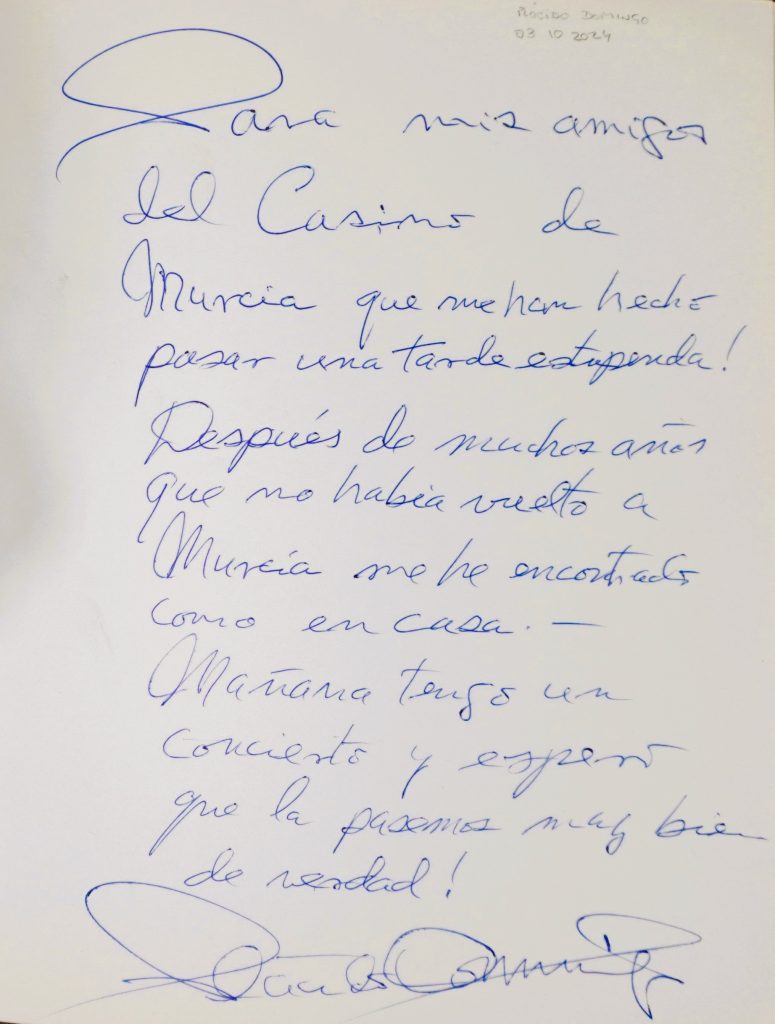 PLÁCIDO DOMINGO
03 10 2024
Para mis amigos
del Casino de
Murcia que me han hecho
pasar una tarde estupenda!
Después de muchos años
que no habia vuelto a
Murcia me he encontrado
como en casa. —
Mañana tengo un
concierto y espero
que la pasemos muy bien
de verdad!
Plácido Domingo